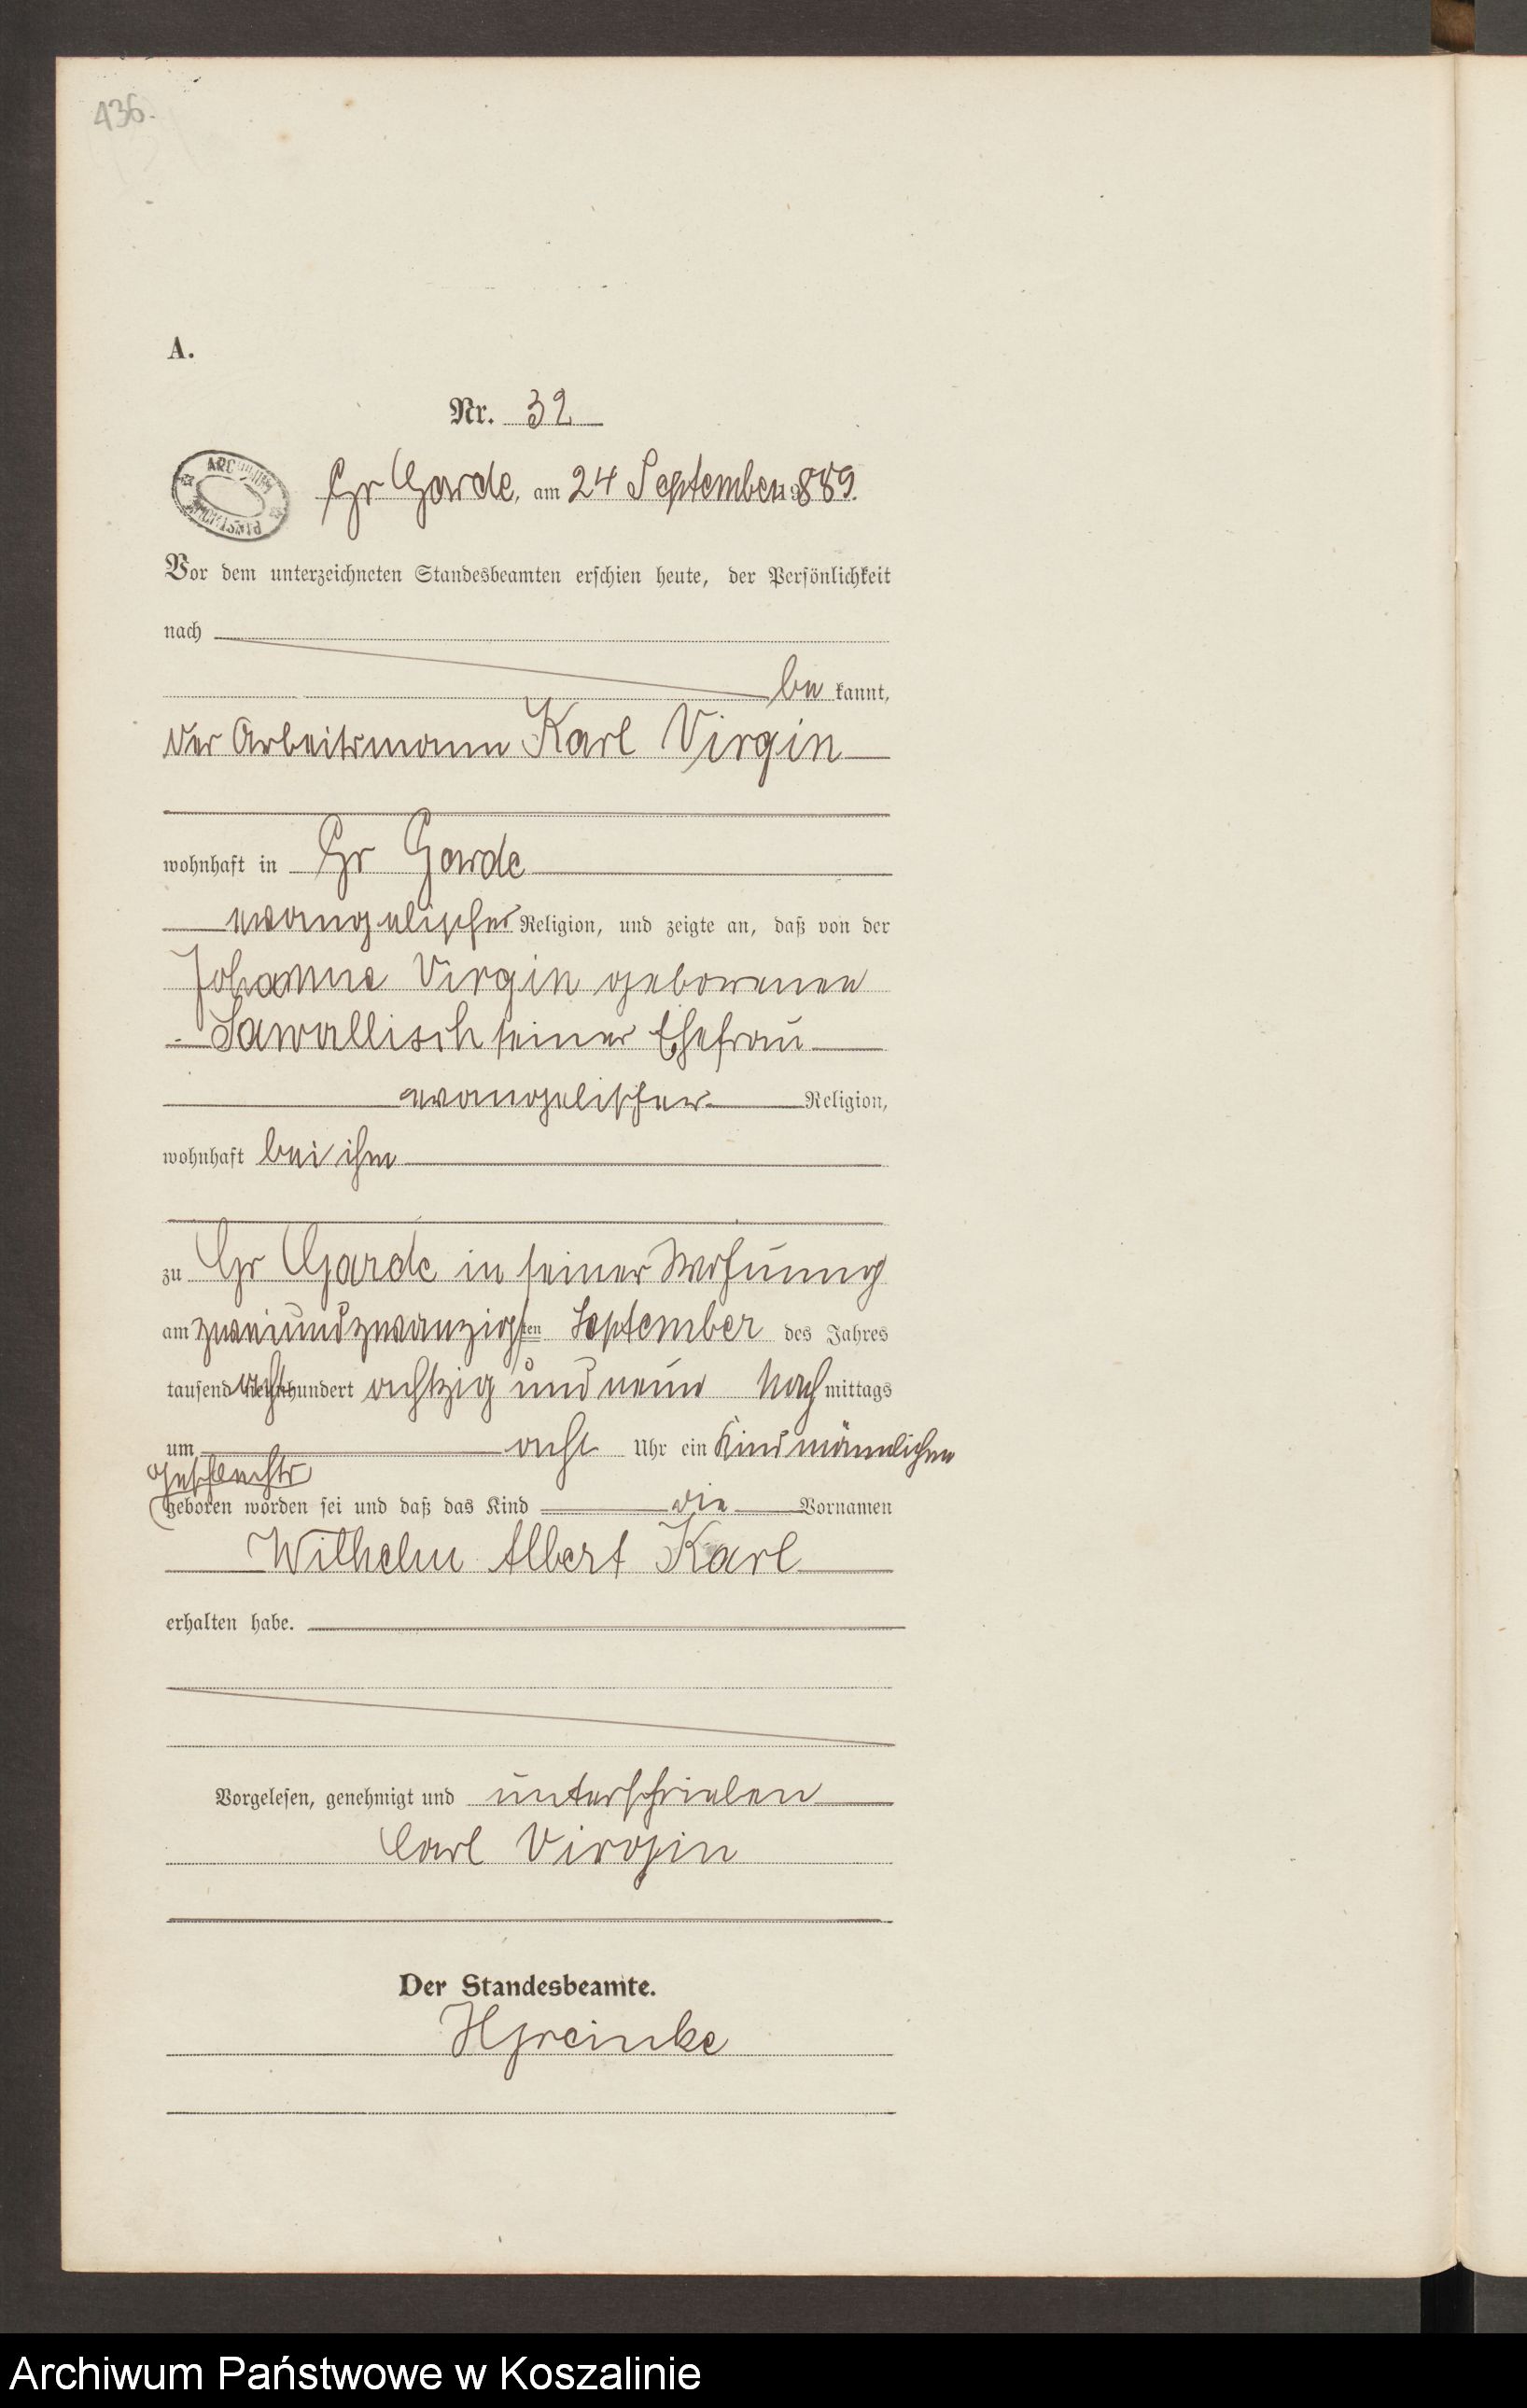 436.
A.
Nr. 32
ARCHIWUM PAŃSTWOWE
Gr Garde, am 24 September 1889.
Vor dem unterzeichneten Standesbeamten erschien heute, der Persönlichkeit
nach
be kannt,
der Arbeitsmann Karl Virgin
wohnhaft in Gr Garde
evangelischer Religion, und zeigte an, daß von der
Johanne Virgin geborenen
Sawallisch seiner Ehefrau
evangelischer Religion,
wohnhaft bei ihm
zu Gr Garde in seiner Wohnung
am zweiundzwanzigsten September des Jahres
tausend acht hundert achtzig und neun Nach mittags
um acht Uhr ein Kind männlichen
Geschlechts
geboren worden sei und daß das Kind die Vornamen
Wilhelm Albert Karl
erhalten habe.
Vorgelesen, genehmigt und unterschrieben
Carl Virgin
Der Standesbeamte.
Archiwum Państwowe w Koszalinie